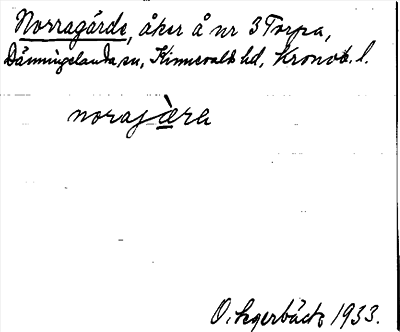 Norragärde, åker å nr 3 Torpa,
Dänningelanda sn, Kinnevalds hd, Kronob. l.
noraj̀ære
O. Lagerbäck 1933.